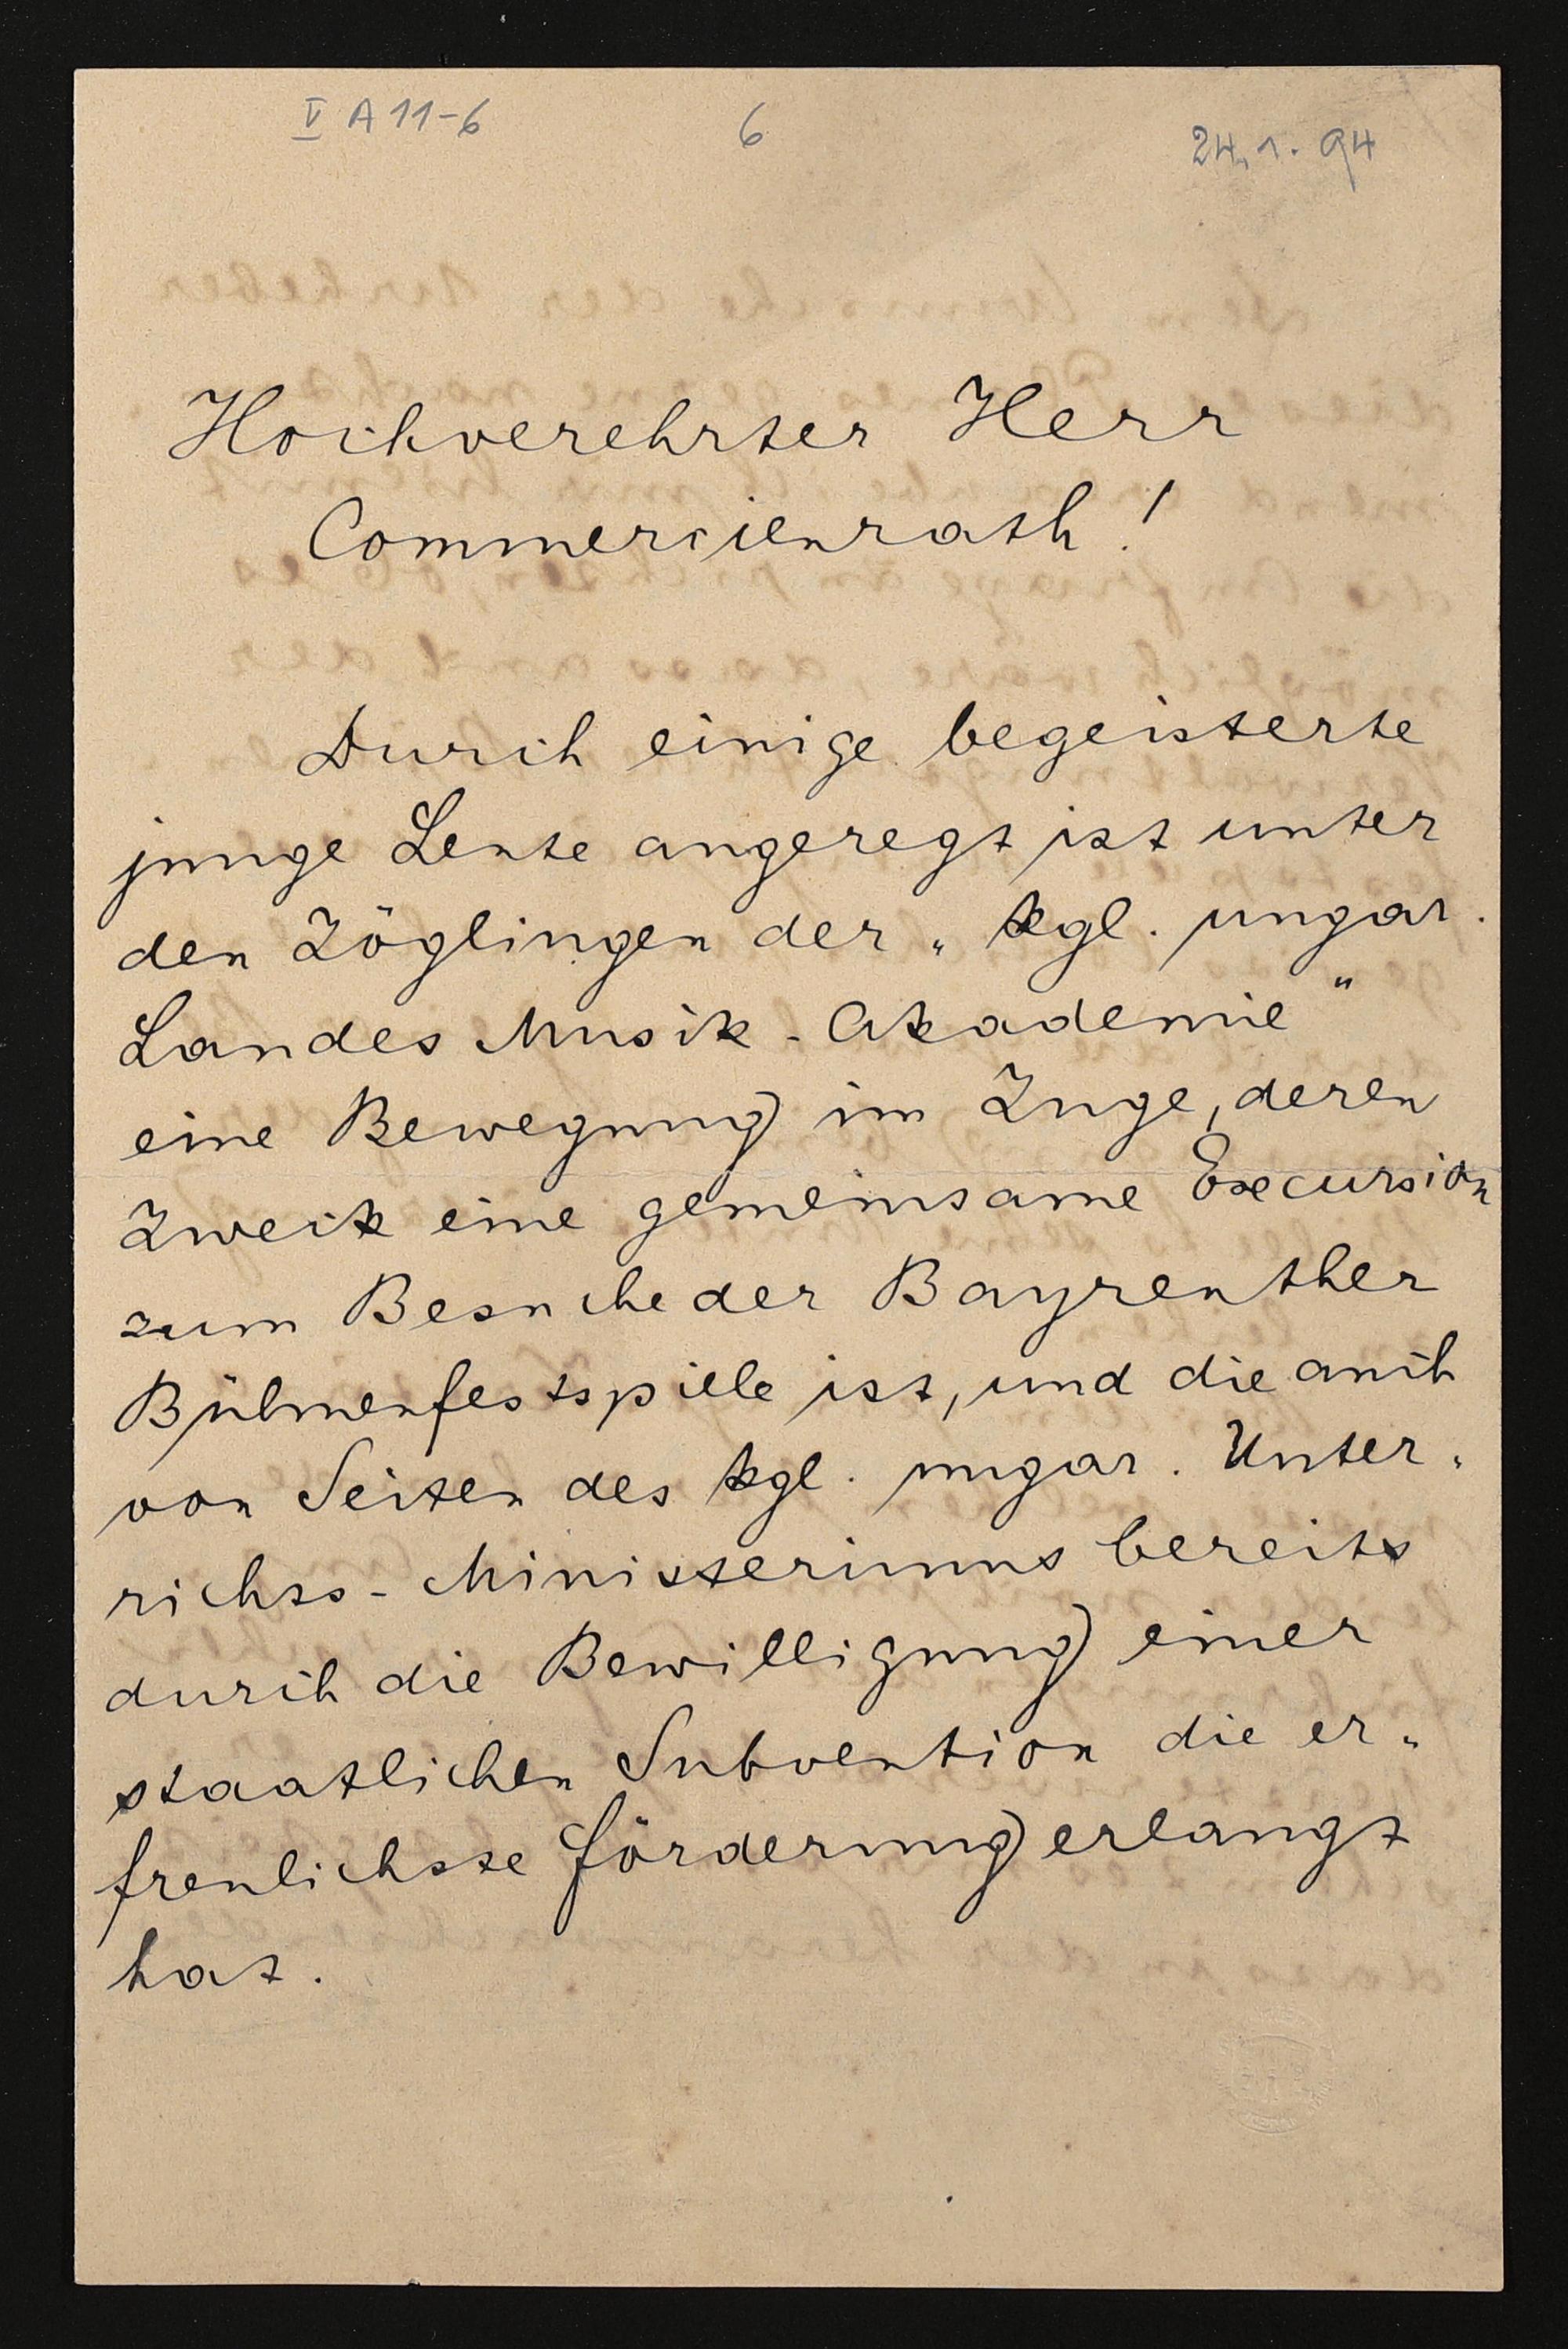 V A 11-6 6 24.1.94
Hochverehrter Herr
Commercienrath!
Durch einige begeisterte
junge Leute angeregt ist unter
den Zöglingen der „kgl. ungar.
Landes Musik-Akademie“
eine Bewegung im Zuge, deren
Zweck eine gemeinsame Excursion
zum Besuche der Bayreuther
Bühnenfestspiele ist, und die auch
von Seiten des kgl. ungar. Unter-
richts-Ministeriums bereits
durch die Bewilligung einer
staatlichen Subvention die er-
freulichste Förderung erlangt
hat.